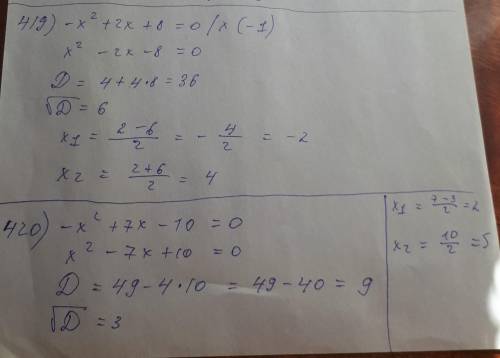 419) -x² + 2x + 8 = 0 / x (-1)
x² - 2x - 8 = 0
D = 4 + 4 * 8 = 36
√D = 6
x1 = (2 - 6)/2 = - 4/2 = -2
x2 = (2+6)/2 = 4
420) -x² + 7x - 10 = 0
x² - 7x + 10 = 0
D = 49 - 4 * 10 = 49 - 40 = 9
√D = 3
x1 = (7-3)/2 = 2
x2 = 10/2 = 5